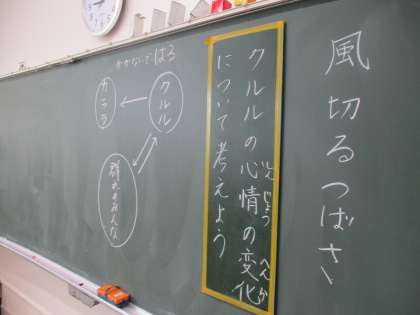 風切るつばさ
クルルの心情の変化
しんじょう
へんか
について考えよう
かかないではる
クルル
カララ
群れのみんな